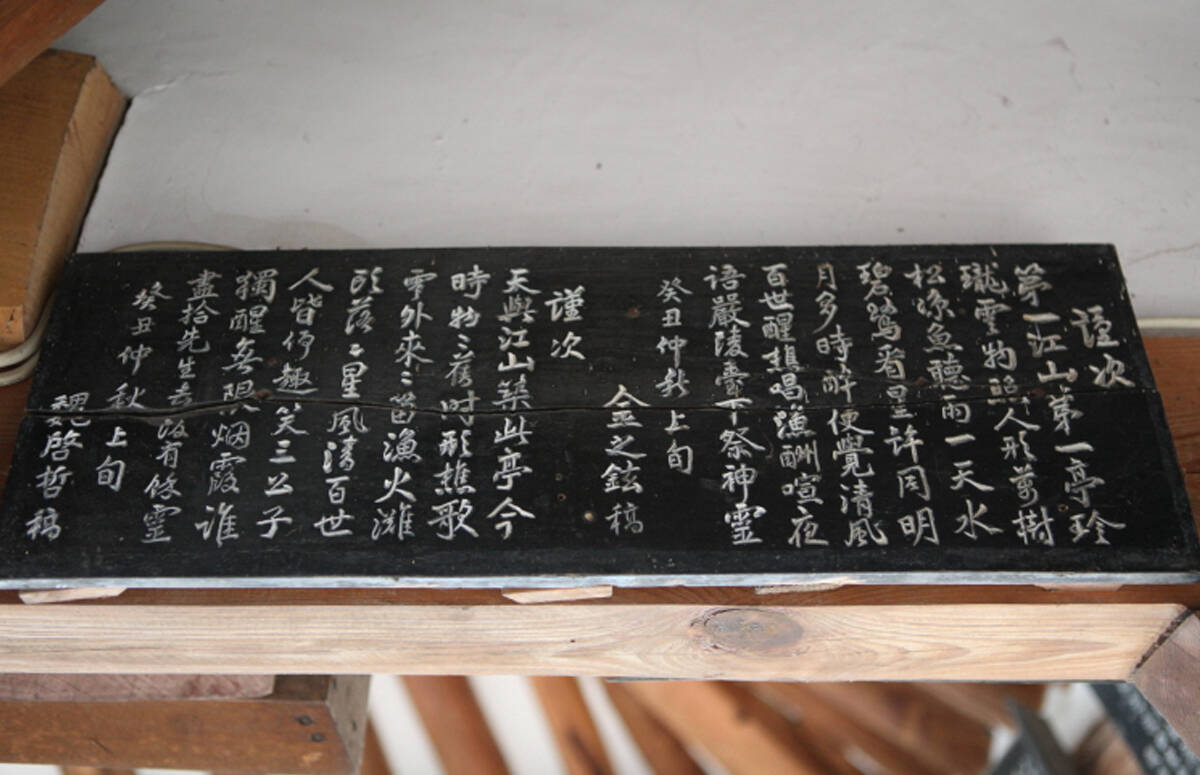 謹次
第一江山第一亭玲
瓏雲物照人形萬樹
松凉魚聽雨一天水
碧鷺看星許同明
月多時醉便覺清風
百世醒樵唱漁酬喧夜
語嚴陵臺下祭神靈
癸丑仲秋上旬
金之鉉稿
謹次
天與江山築此亭今
時物〻舊時形樵歌
雲外來〻笛漁火灘
頭落〻星風清百世
人皆仰趣笑三公子
獨醒無限烟霞誰
盡拾先生去後有餘靈
癸丑仲秋上旬
魏啓哲稿